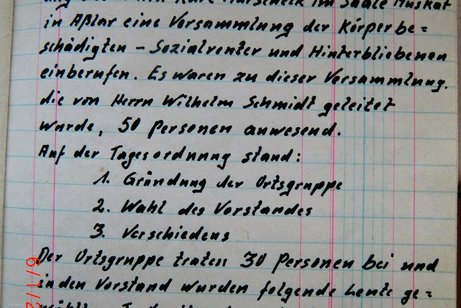 im Saale Muskat
in Aßlar eine Versammlung der Körperbe=
schädigten - Sozialrenter und Hinterbliebenen
einberufen. Es waren zu dieser Versammlung.
die von Herrn Wilhelm Schmidt geleitet
wurde, 50 Personen anwesend.
Auf der Tagesordnung stand:
1. Gründung der Ortsgruppe
2. Wahl des Vorstandes
3. Verschiedens
Der Ortsgruppe traten 30 Personen bei und
in den Vorstand wurden folgende Leute ge=